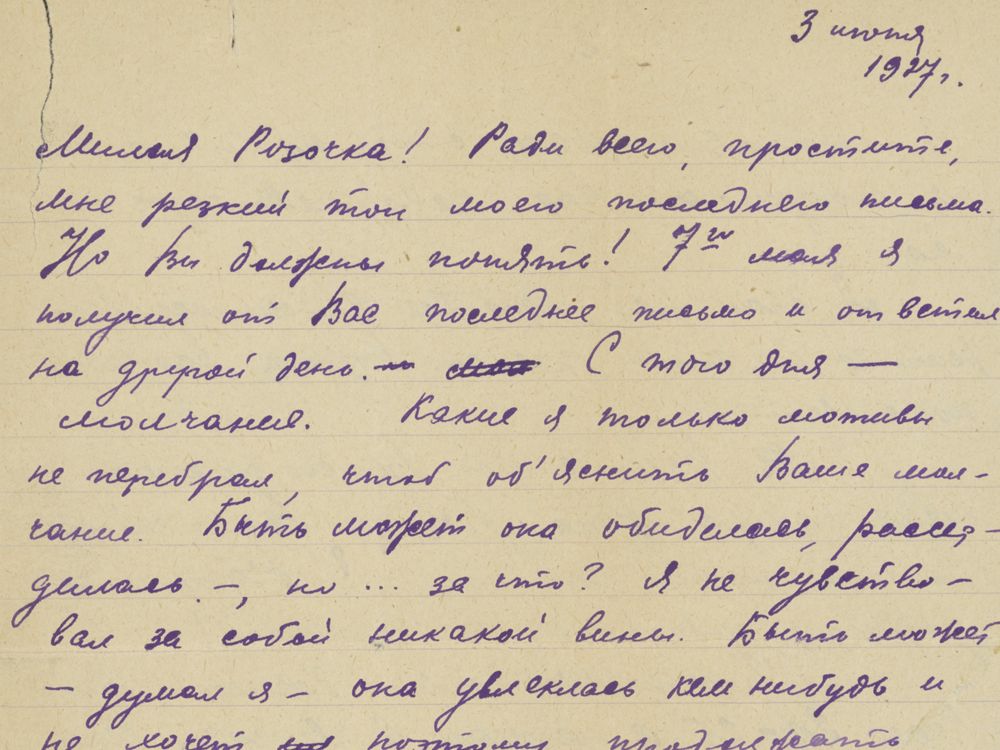 3 июня
1927 г.
Милая Розочка! Ради всего, простите,
мне резкий тон моего последнего письма.
Но Вы должны понять! 7го мая я
получил от Вас последнее письмо и ответил
на другой день. — С того дня —
молчание. Какие я только мотивы
не перебрал, чтоб об'яснить Ваше мол-
чание. Быть может она обиделась, рассер-
дилась —, но ... за что? Я не чувство-
вал за собой никакой вины. Быть может
— думал я — она увлеклась кем нибудь и
не хочет поэтому продолжать